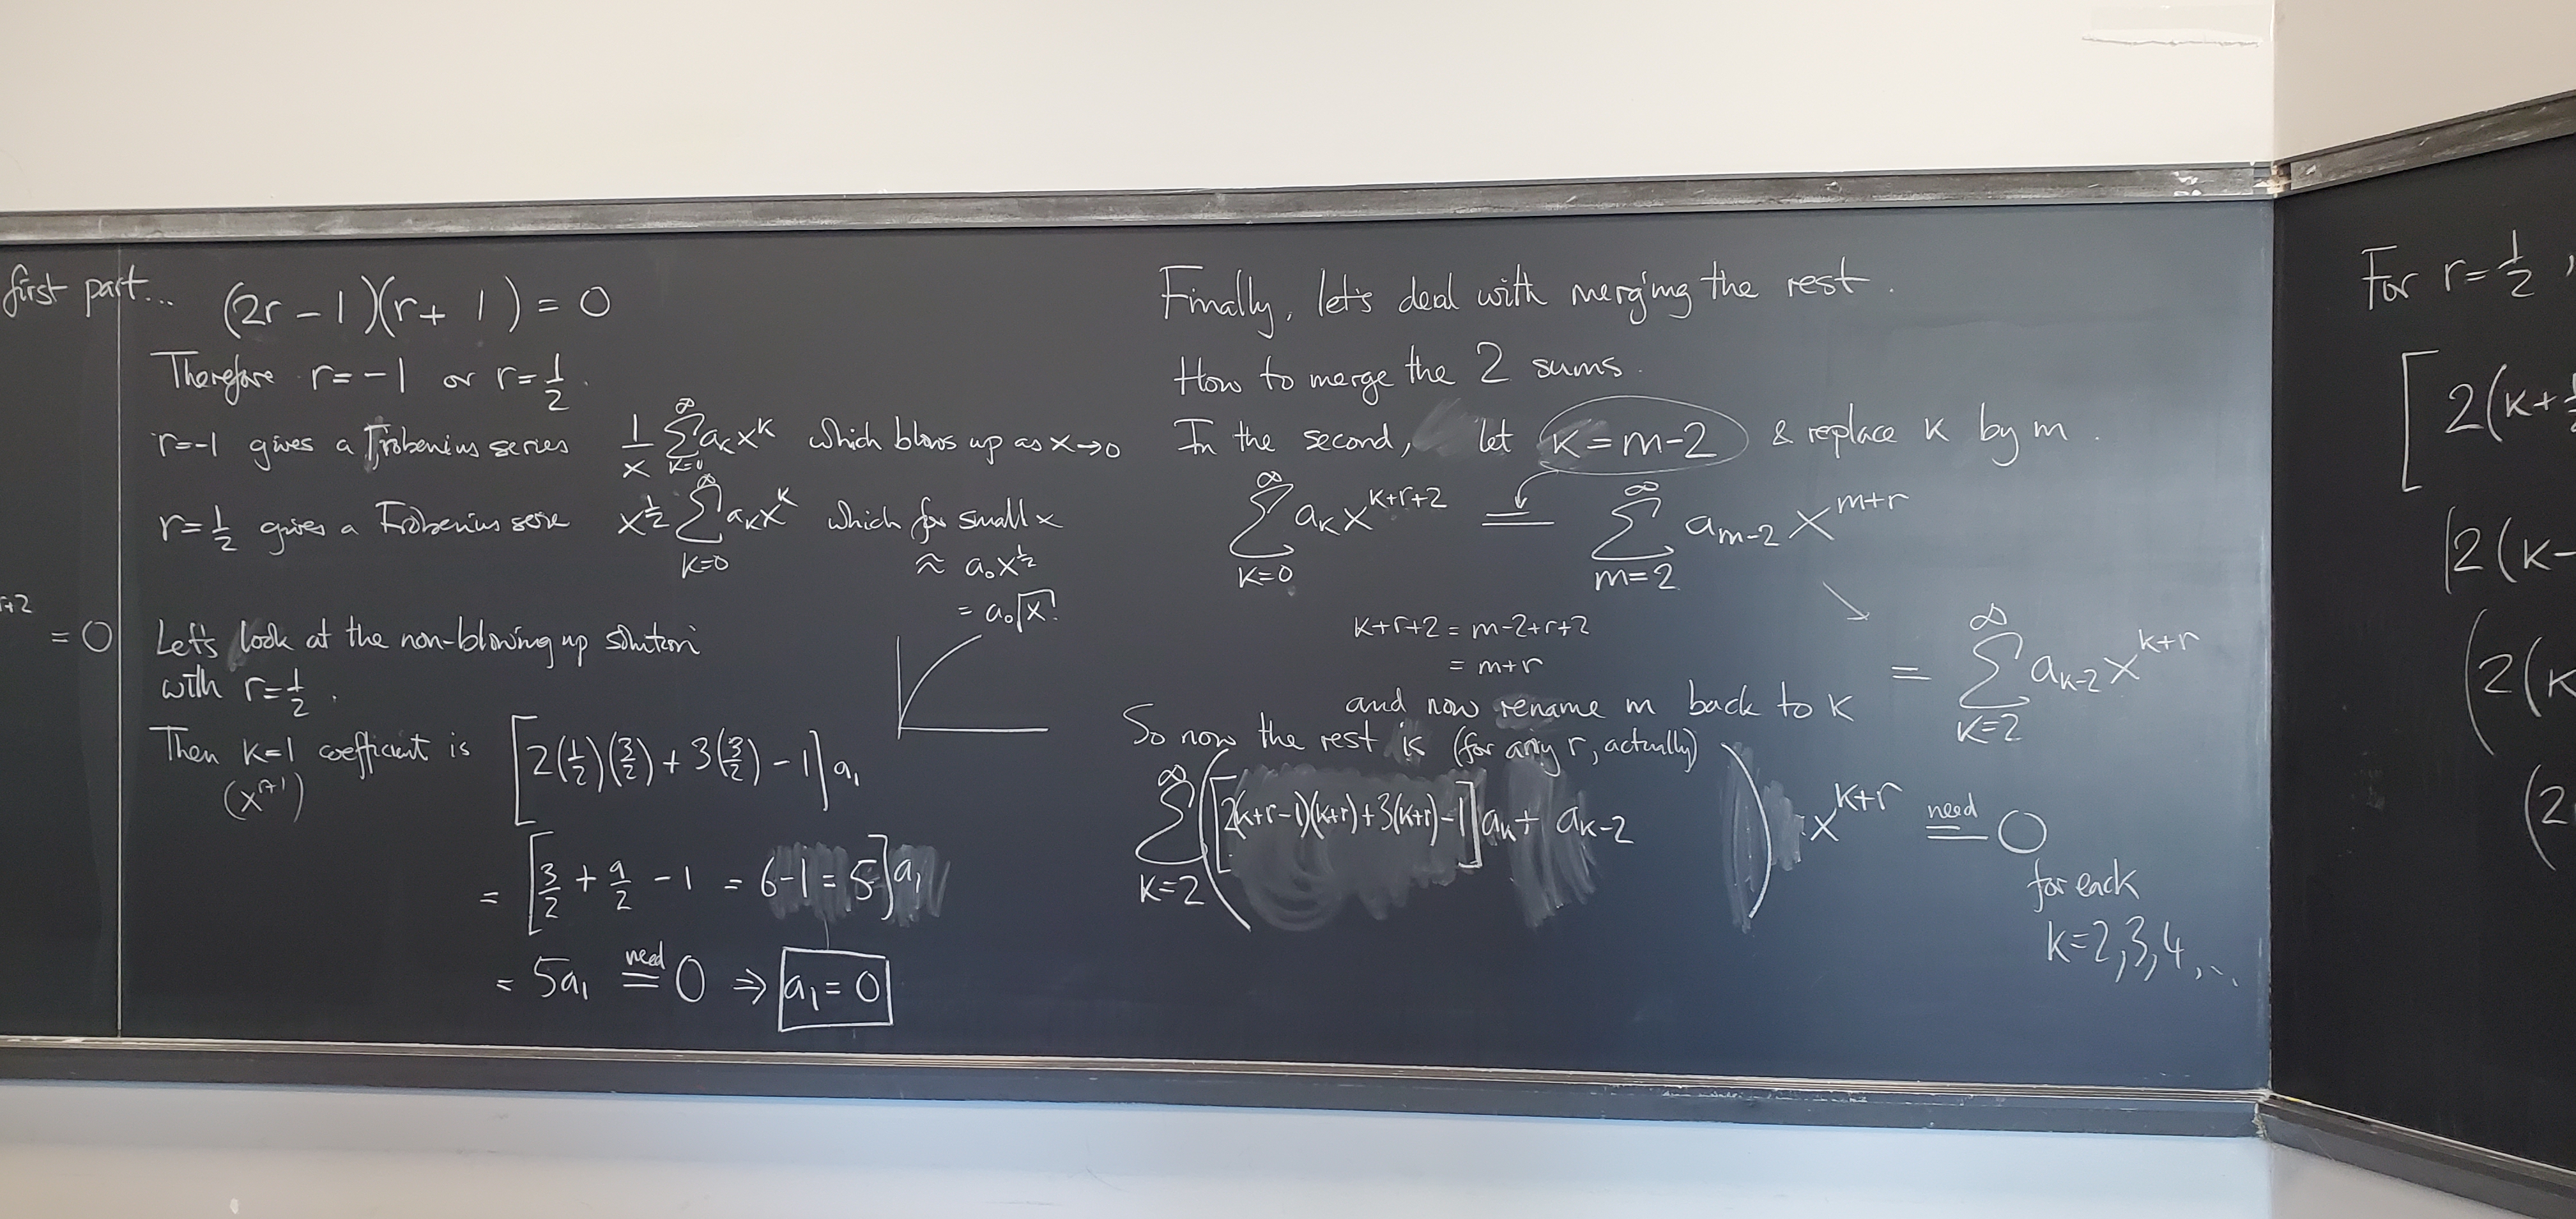 first part...
r+2
= 0
(2r - 1)(r + 1) = 0
Therefore r = -1 or r = 1/2.
r=-1 gives a Frobenius series 1/x ∑_{k=0}^{∞} a_k x^k which blows up as x→0
r = 1/2 gives a Frobenius serie x^{1/2} ∑_{k=0}^{∞} a_k x^k which for small x
≈ a_0 x^{1/2}
= a_0 √x
Let's look at the non-blowing up solution
with r = 1/2.
Then k=1 coefficient is [2(1/2)(3/2) + 3(3/2) - 1] a_1
(x^{r+1})
= [3/2 + 9/2 - 1 = 6-1 = 5] a_1
= 5a_1 need = 0 ⇒ a_1 = 0
Finally, let's deal with merging the rest.
How to merge the 2 sums.
In the second, let k = m-2 & replace k by m.
∑_{k=0}^{∞} a_k x^{k+r+2} = ∑_{m=2}^{∞} a_{m-2} x^{m+r}
k+r+2 = m-2+r+2
= m+r
and now rename m back to k
= ∑_{k=2}^{∞} a_{k-2} x^{k+r}
So now the rest is (for any r, actually)
∑_{k=2}^{∞} ([2(k+r-1)(k+r)+3(k+r)-1] a_k + a_{k-2}) x^{k+r} need = 0
for each
k=2,3,4,...
For r = 1/2,
[2(k+
[2(k-
(2(k
(2